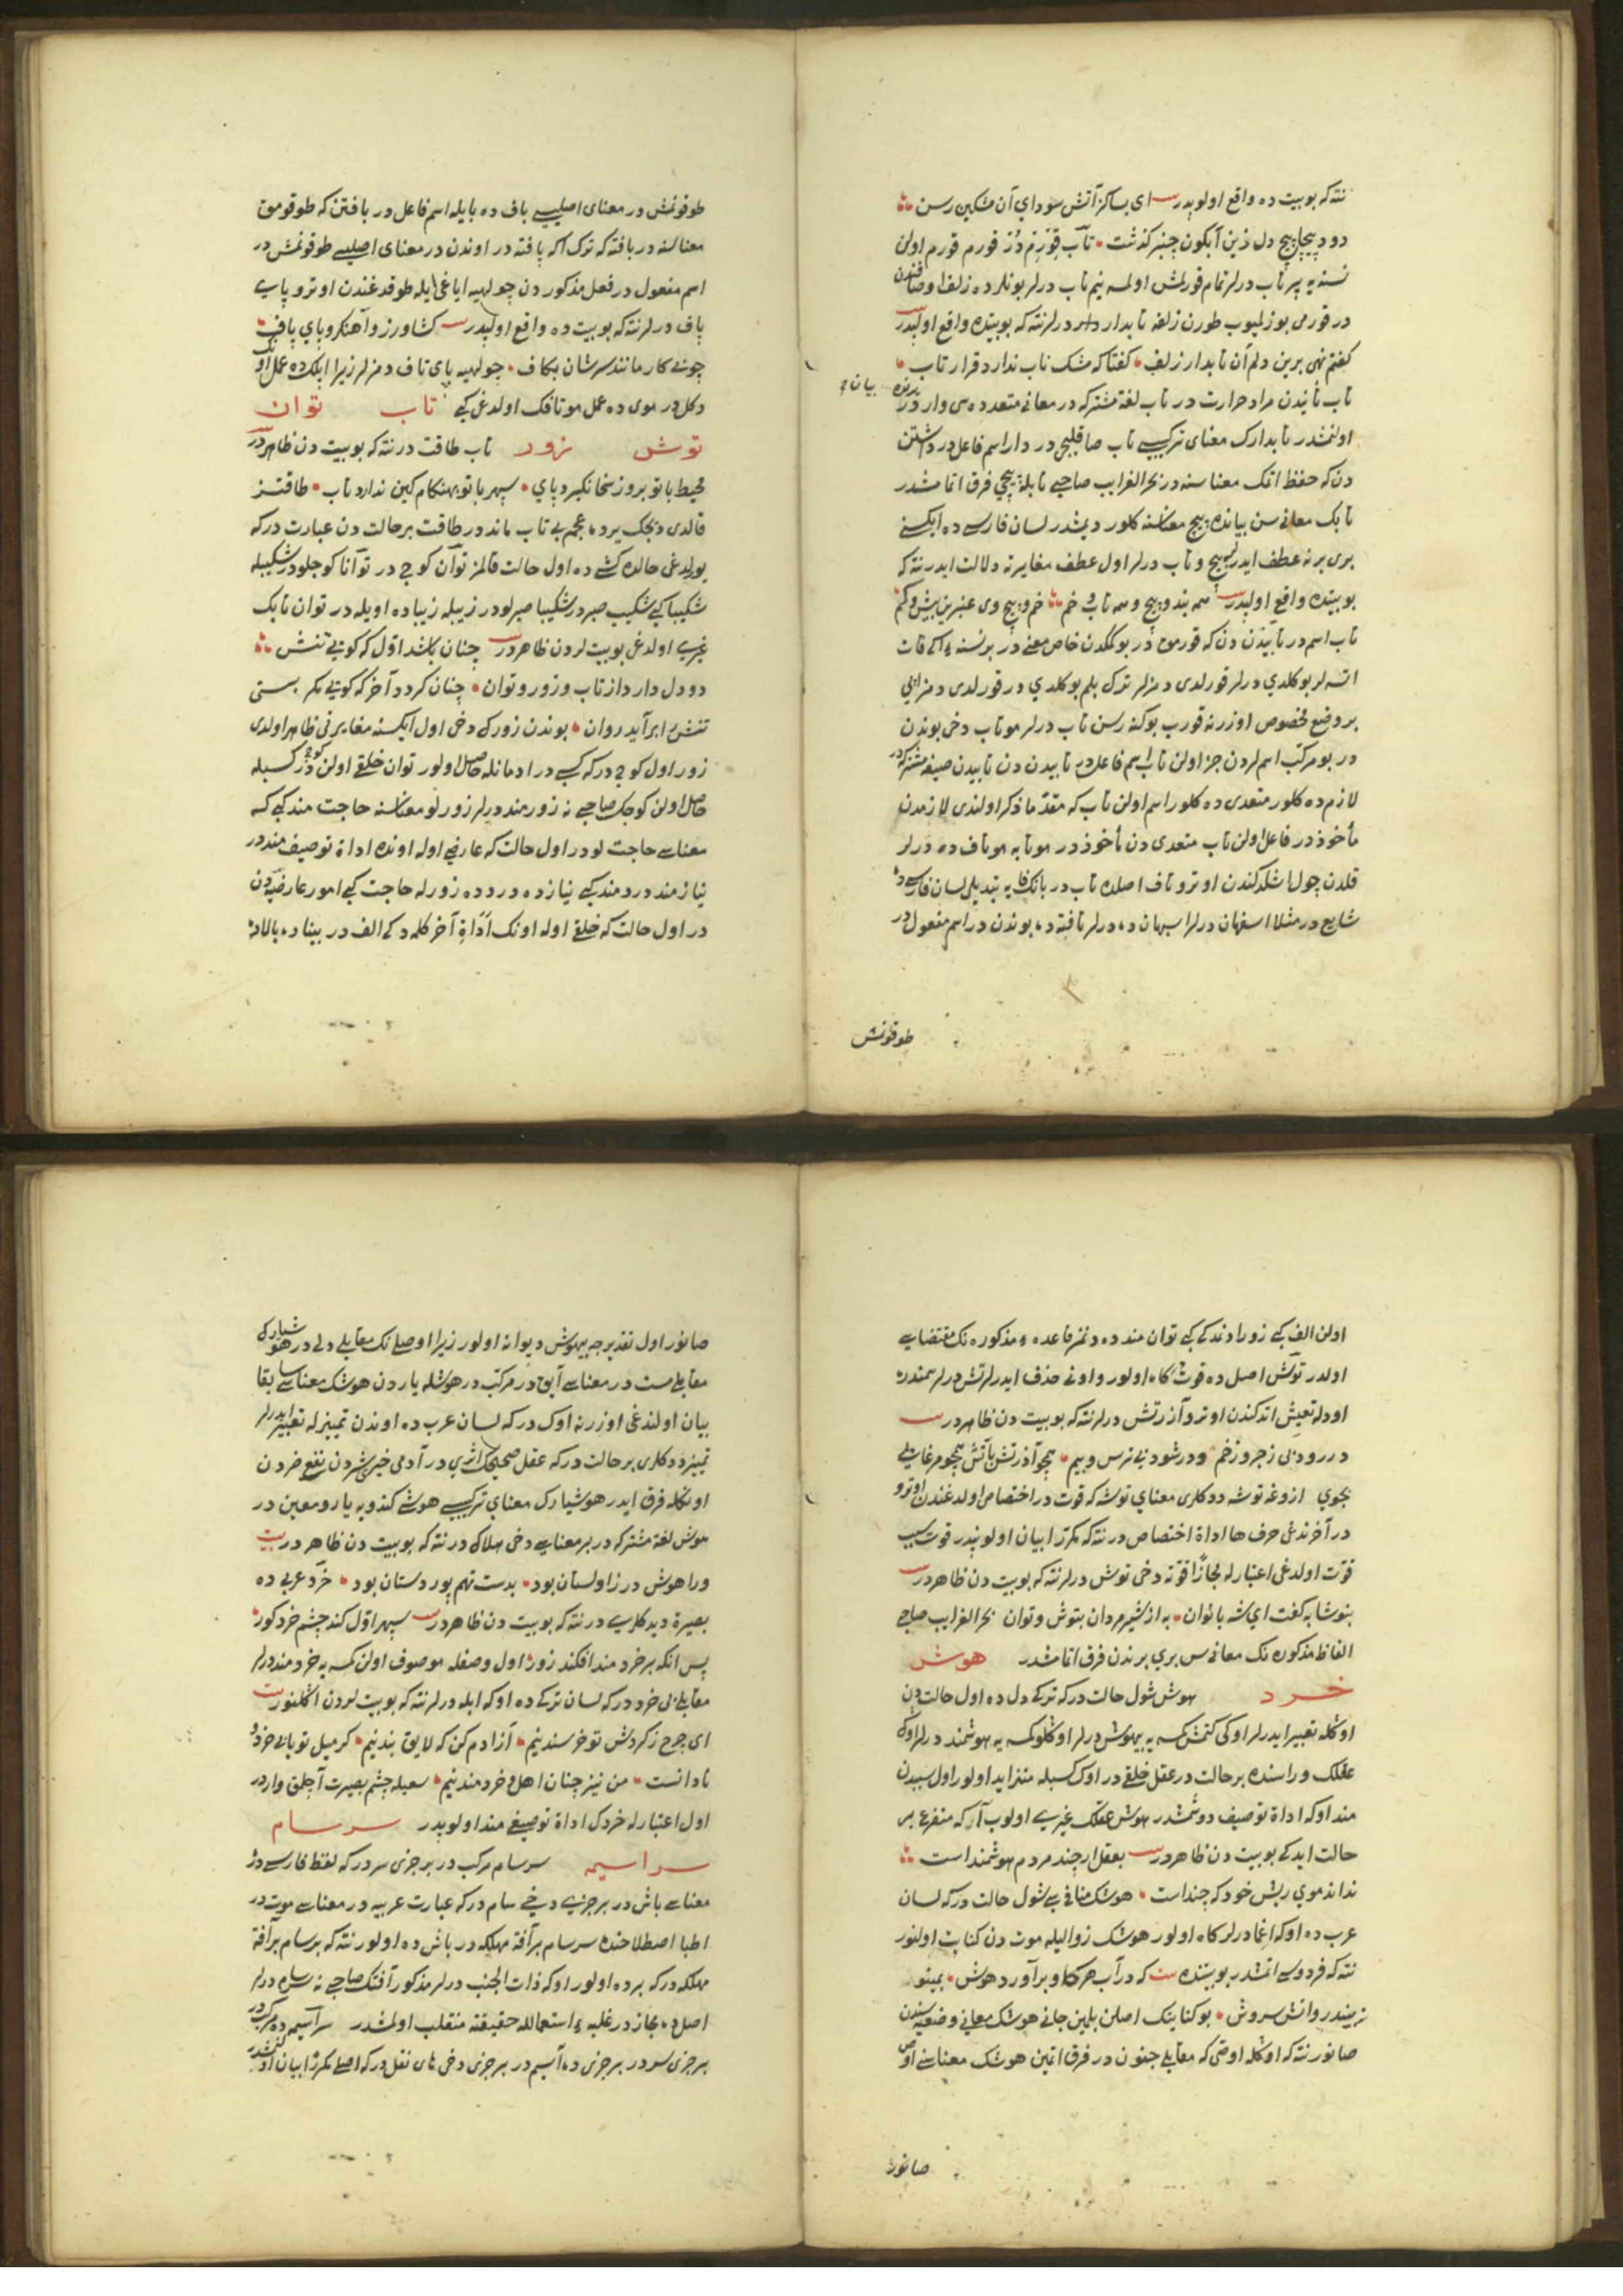 نته که بو بیت ده واقع اولوبدر ای بسا کز آتش سودای آن مشکین رسن
دود پیچاپیچ دل زین آبگون چنبر گذشت تاب قورم در قورم قورم اولن
نسنه یه پر تاب درلر تمام قورلمش اولمسه نیم تاب درلر بونلر ده زلف اوصافندن
در قورمی بوزلمیوب طورن زلفه تابدار درلر نته که بو بیتده واقع اولبدر
کفتم نهی برین دلم آن تابدار زلف کفتا که مشک ناب ندارد قرار تاب
تاب تابندن مراد حرارت در تاب لغة مشترکه در معانی متعدده سی وار در
بیان
اولنمشدر تابدارک معنای ترکیبی تاب صاقلیجی در دار اسم فاعل در داشتن
دن که حفظ اتمک معناسنه در بحر الغرایب صاحبی تابله پیچی فرق اتمامشدر
تابک معانی سن بیانده پیچ معناسنه کلور دیمشدر لسان فارسی ده ایکسنی
بری برنه عطف ایدر لر پیچ و تاب درلر اول عطف مغایرته دلالت ایدر نته که
بو بیتده واقع اولبدر همه بند و پیچ و همه تاب و خم خم و پیچ وی عنبرین بیش و کم
تاب اسم در تابیدن دن که قورمق در بوکمکدن خاص معنی در بر نسنه یی ایکی قات
اتسه لر بوکلدی درلر قورلدی دمزلر ترک بلم بوکلدی در قورلدی دمز ایپی
بر وضع مخصوص اوزرنه قورب بوکنه رسن تاب درلر موتاب دخی بوندن
در بو مرکب اسملردن جزء اولن تاب اسم فاعل در تابیدن دن تابیدن صیغه مشترکه در
لازم ده کلور متعدی ده کلور اسم اولن تاب که مقدما ذکر اولندی لازمدن
مأخوذ در فاعل اولن تاب متعدی دن مأخوذ در موتابه موتاف ده درلر
قلدن چول اشلدکندن اوترو تاف اصلده تاب در بانک فایه تبدیلی لسان فارسی ده
شایع در مثلا اسفهان درلر اسبهان ده درلر تافته ده بوندن در اسم مفعول در
طوقونمش
طوقونمش در معنای اصلیسی باف ده بایله اسم فاعل در بافتن که طوقومق
معناسنه در بافته که ترک اکه پافته در اوندن در معنای اصلیسی طوقونمش در
اسم مفعول در فعل مذکور دن چولهیه ایاغی ایله طوقدغندن اوترو پای
باف درلر نته که بو بیت ده واقع اولبدر کشاورز و آهنکر و پای باف
چو بی کار مانند سرشان بکاف چولهیه پای تاف دمزلر زیرا ایپلکده عمل
دکل در موی ده عمل موتافک اولدغی کبی تاب توان
توش زور تاب طاقت در نته که بو بیت دن ظاهر در
محیط با تو بروز سخا نکیرد پای سپهر با تو بهنکام کین ندارد تاب طاقتمز
قالدی دیجک یرده عجم بی تاب ماندر طاقت بر حالت دن عبارت در که
یورلدغی حالده کشی ده اول حالت قالمز توان کوچ در توانا کوجلو در شکیبله
شکیبا کبی شکیب صبر در شکیبا صبرلو در زیبله زیبا ده اویله در توان تابک
غیری اولدغی بو بیت لردن ظاهر در چنان باشد اول که کویی تنش
دو دل دارد از تاب و زور و توان چنان کردد آخر که کویی مکر بسستی
تنش را برآید روان بوندن زورک دخی اول ایکیسنه مغایرتی ظاهر اولدی
زور اول کوچ در که کسب در ادمانله حاصل اولور توان خلقی اولن کوچ در کسبله
حاصل اولن کوجک صاحبی نه زورمند درلر زورلو معناسنه حاجت مند کبی که
معناسی حاجت لو در اول حالت که عارضی اوله اونده اداة توصیف مند در
نیازمند دردمند کبی نیاز ده درد ده زورله حاجت کبی امور عارضیه دن
در اول حالت که خلقی اوله اونک اداة آخر کلمه دکی الف در بینا ده بالاده
اولن الف کبی زوراوند کی کبی توان مند ده دنمز قاعده مذکوره نک مقتضاسی
اولدر توش اصل ده قوت کاه اولور واونی حذف ایدرلر تش درلر سمندر
اودله تعیش اتدکندن اوترو آذرتش درلر نته که بو بیت دن ظاهر در
در رود بی زجر و زخم و در شود بی ترس و بیم همچو آذرتش بآتش همچو مرغابی
بجوی ازوغه توشه ددکلری معنای توشه که قوت در اختصاص اولدغندن اوترو
در آخرندغی حرف ها اداة اختصاص در نته که مکررا بیان اولوبدر قوت سبب
قوت اولدغی اعتبارله مجازا قوته دخی توش درلر نته که بو بیت دن ظاهر در
بنوشابه کفت ای شه بانوان به از شیر مردان بتوش و توان بحر الغرایب صاحبی
الفاظ مذکوره نک معانی سن بری برندن فرق اتمامشدر هوش
خرد هوش شول حالت در که ترکی دل ده اول حالت دن
اوکله تعبیر ایدرلر اوکی کتمش کمسه یه بیهوش درلر اوکلو کمسه یه هوشمند درلر اوک
عقلک وراسنده بر حالت در عقل خلقی در اوک کسبله متزاید اولور اول سببدن
مند اوکه اداة توصیف دوشمشدر هوش عقلک غیری اولوب آکه متفرع بر
حالت ایدکی بو بیت دن ظاهر در بعقل ارچند مردم هوشمند است
نداند موی ریش خود که چند است هوشک منافیسی شول حالت در که لسان
عرب ده اوکه اغما درلر کاه اولور هوشک زوالیله موت دن کنایت اولنور
نته که فردوسی اتمشدر بو بیتده که در آب هر کاو برآورد هوش بمینو
نبیند روانش سروش بو کنایتک اصلن بلمین جانی هوشک معانی وضعیه سندن
صانور نته که اوکله اوصی که مقابلی جنون در فرق اتمین هوشک معناسنی اوص
صانور
صانور اول تقدیرجه بیهوش دیوانه اولور زیرا اوصلینک مقابلی دلی در هوشیارک
مقابلی مست در معناسی آیق در مرکب در هوشله یار دن هوشک معناسی سابقا
بیان اولندغی اوزرنه اوک در که لسان عرب ده اوندن تمیزله تعبیر ایدرلر
تمییز ددکلری بر حالت در که عقل صحیحک اثری در آدمی خیری شردن نفعی ضردن
اونکله فرق ایدر هوشیارک معنای ترکیبی هوشی کندویه یار و معین در
هوش لغة مشترکه در بر معناسی دخی هلاک در نته که بو بیت دن ظاهر در
ورا هوش در زاولستان بود بدست تهم پور دستان بود خرد عربی ده
بصیرة دیدکلری در نته که بو بیت دن ظاهر در سپهر اول کند چشم خرد کور
پس انکه بر خردمند افکند زور اول وصفله موصوف اولن کمسه یه خردمند درلر
مقابلی بی خرد در که لسان ترکی ده اوکه ابله درلر نته که بو بیت لردن اکلنور
ای چرخ ز کردش تو خرسند نیم آزادم کن که لایق بند نیم کر میل تو با بی خرد و
نادانست من نیز چنان اهل و خردمند نیم سعیله چشم بصیرت آچلق وار در
اول اعتبارله خردک اداة توصیفی مند اولوبدر سرسام
سراسیمه سرسام مرکب در بر جزی سر در که لفظ فارسی در
معناسی باش در بر جزیی دخی سام در که عبارت عربیه در معناسی موت در
اطبا اصطلاحنده سرسام بر آفة مهلکه در باش ده اولور نته که برسام بر آفة
مهلکه در که برده اولور اوکه ذات الجنب درلر مذکور آفتک صاحبی نه سرسام درلر
اصل ده مجاز در غلبه استعمالله حقیقته منقلب اولمشدر سراسیمه ده مرکب در
بر جزی سر در بر جزی ده آسیم در بر جزی دخی های نقل در که اصلی مکررا بیان اولنمشدر